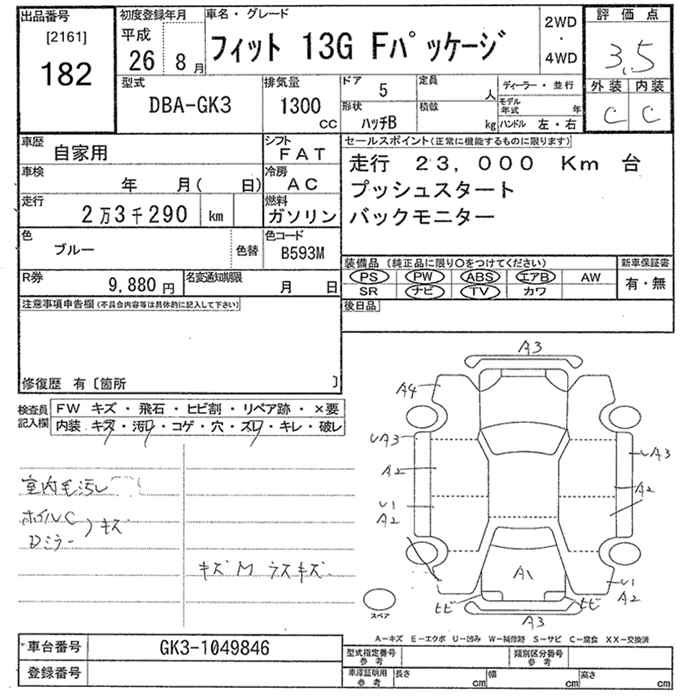 出品番号
[2161]
182
初度登録年月
平成
26 8 月
車名・グレード
フィット 13G Fパッケージ
2WD
・
4WD
評価点
3.5
外装 内装
C C
型式
DBA-GK3
排気量
1300
CC
ドア 5
定員 人
ディーラー・並行
形状 ハッチB
積載 kg
モデル年式 年
ハンドル 左・右
車歴
自家用
シフト
FAT
セールスポイント(正常に機能するものに限ります)
走行 23,000 Km 台
プッシュスタート
バックモニター
車検
年 月( 日)
冷房
AC
走行
2万3千290 km
燃料
ガソリン
色
ブルー
色替
色コード
B593M
装備品 (純正品に限り○をつけてください)
新車保証書
PS PW ABS エアB AW
SR ナビ TV カワ
有・無
R券
9,880 円
名変通知期限
月 日
後日品
注意事項申告欄(不具合内容等は具体的に記入して下さい)
修復歴 有〔箇所 〕
検査員記入欄
FW キズ・飛石・ヒビ割・リペア跡・×要
内装 キズ・汚れ・コゲ・穴・スレ・キレ・破レ
室内毛汚レ
ホイルC
Dミラー
キズ
キズM ラスキズ
A3
A4
UA3
UA3
A2
A2
U1
A2
A1
U1
A2
ヒビ
ヒビ
A3
スペア
A−キズ E−エクボ U−凹み W−補修跡 S−サビ C−腐食 XX−交換済
車台番号
GK3-1049846
登録番号
型式指定番号
参考
類別区分番号
参考
車庫証明用
参考
長さ cm
幅 cm
高さ cm